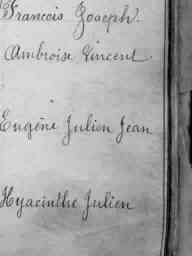 Francois Joseph.
Ambroise Vincent.
Eugène Julien Jean
Hyacinthe Julien